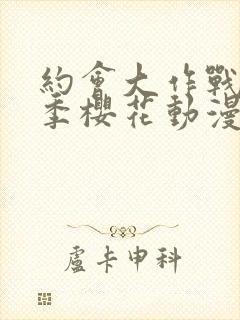 約會大作戰
季櫻花動漫
盧卡申科